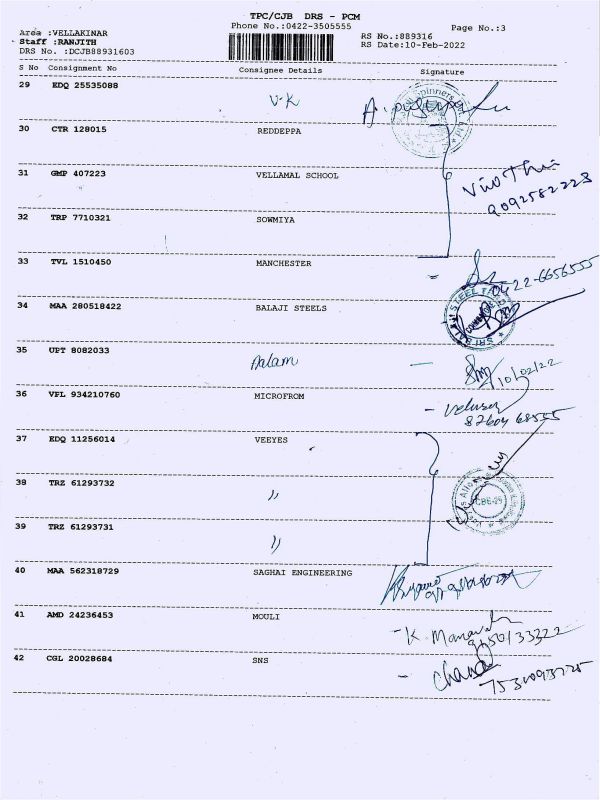 TPC/CJB DRS - PCM
Area :VELLAKINAR
Phone No.:0422-3505555
Page No.:3
Staff :RANJITH
RS No.:889316
DRS No. :DCJB88931603
RS Date:10-Feb-2022
S No Consignment No Consignee Details Signature
29 EDQ 25535088 V-K
30 CTR 128015 REDDEPPA
31 GMP 407223 VELLAMAL SCHOOL
9092582223
32 TRP 7710321 SOWMIYA
33 TVL 1510450 MANCHESTER
0422-6656555
34 MAA 280518422 BALAJI STEELS
SRI BALAJI STEEL
35 UPT 8082033 Aalam
10/02/22
36 VFL 934210760 MICROFROM
37 EDQ 11256014 VEEYES
38 TRZ 61293732 〃
CBE-29
39 TRZ 61293731 〃
40 MAA 562318729 SAGHAI ENGINEERING
41 AMD 24236453 MOULI
42 CGL 20028684 SNS